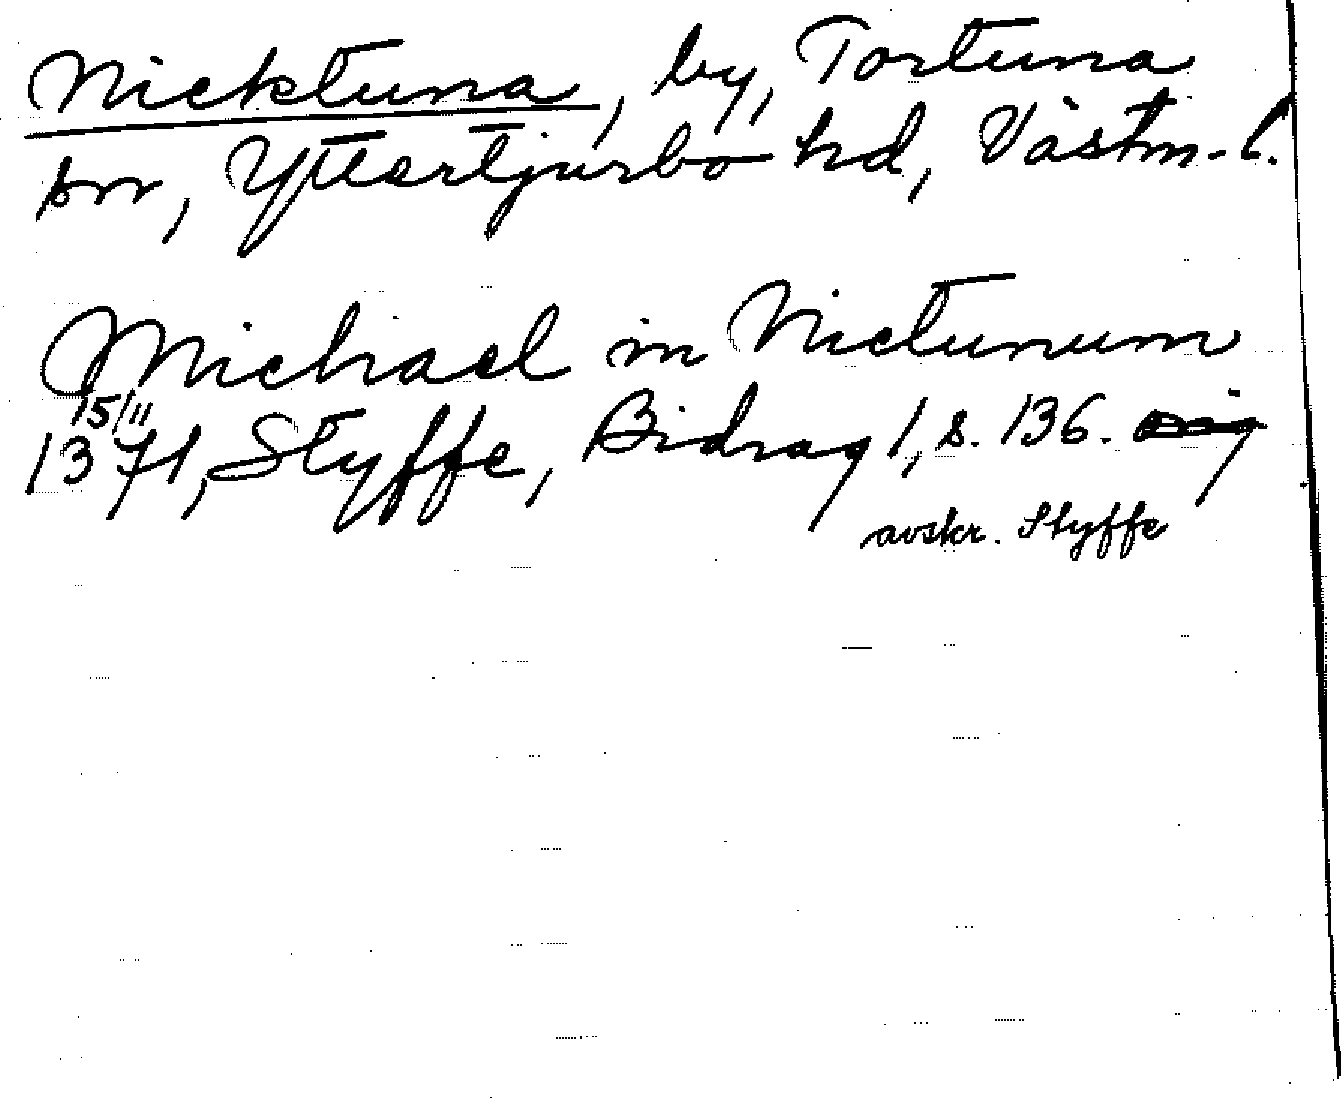 Nicktuna, by, Tortuna
sn, Yttertjurbo hd, Västm. l.
Michael in Nictunum
15/11
1371, Styffe, Bidrag 1, s. 136.
avskr. Styffe